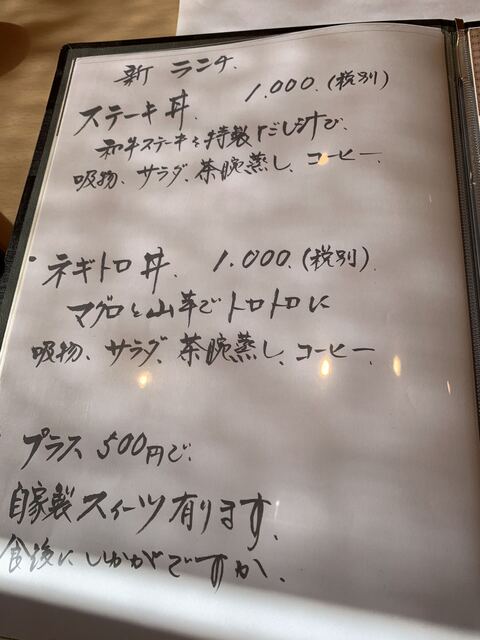 新 ランチ.
ステーキ丼. 1.000.(税別)
和牛ステーキを特製だし汁で、
吸物、サラダ、茶腕蒸し、コーヒー.
・ネギトロ丼. 1.000.(税別)
マグロと山芋でトロトロに
吸物、サラダ、茶腕蒸し、コーヒー.
プラス 500円で.
自家製スィーツ有ります.
食後にいかがですか.